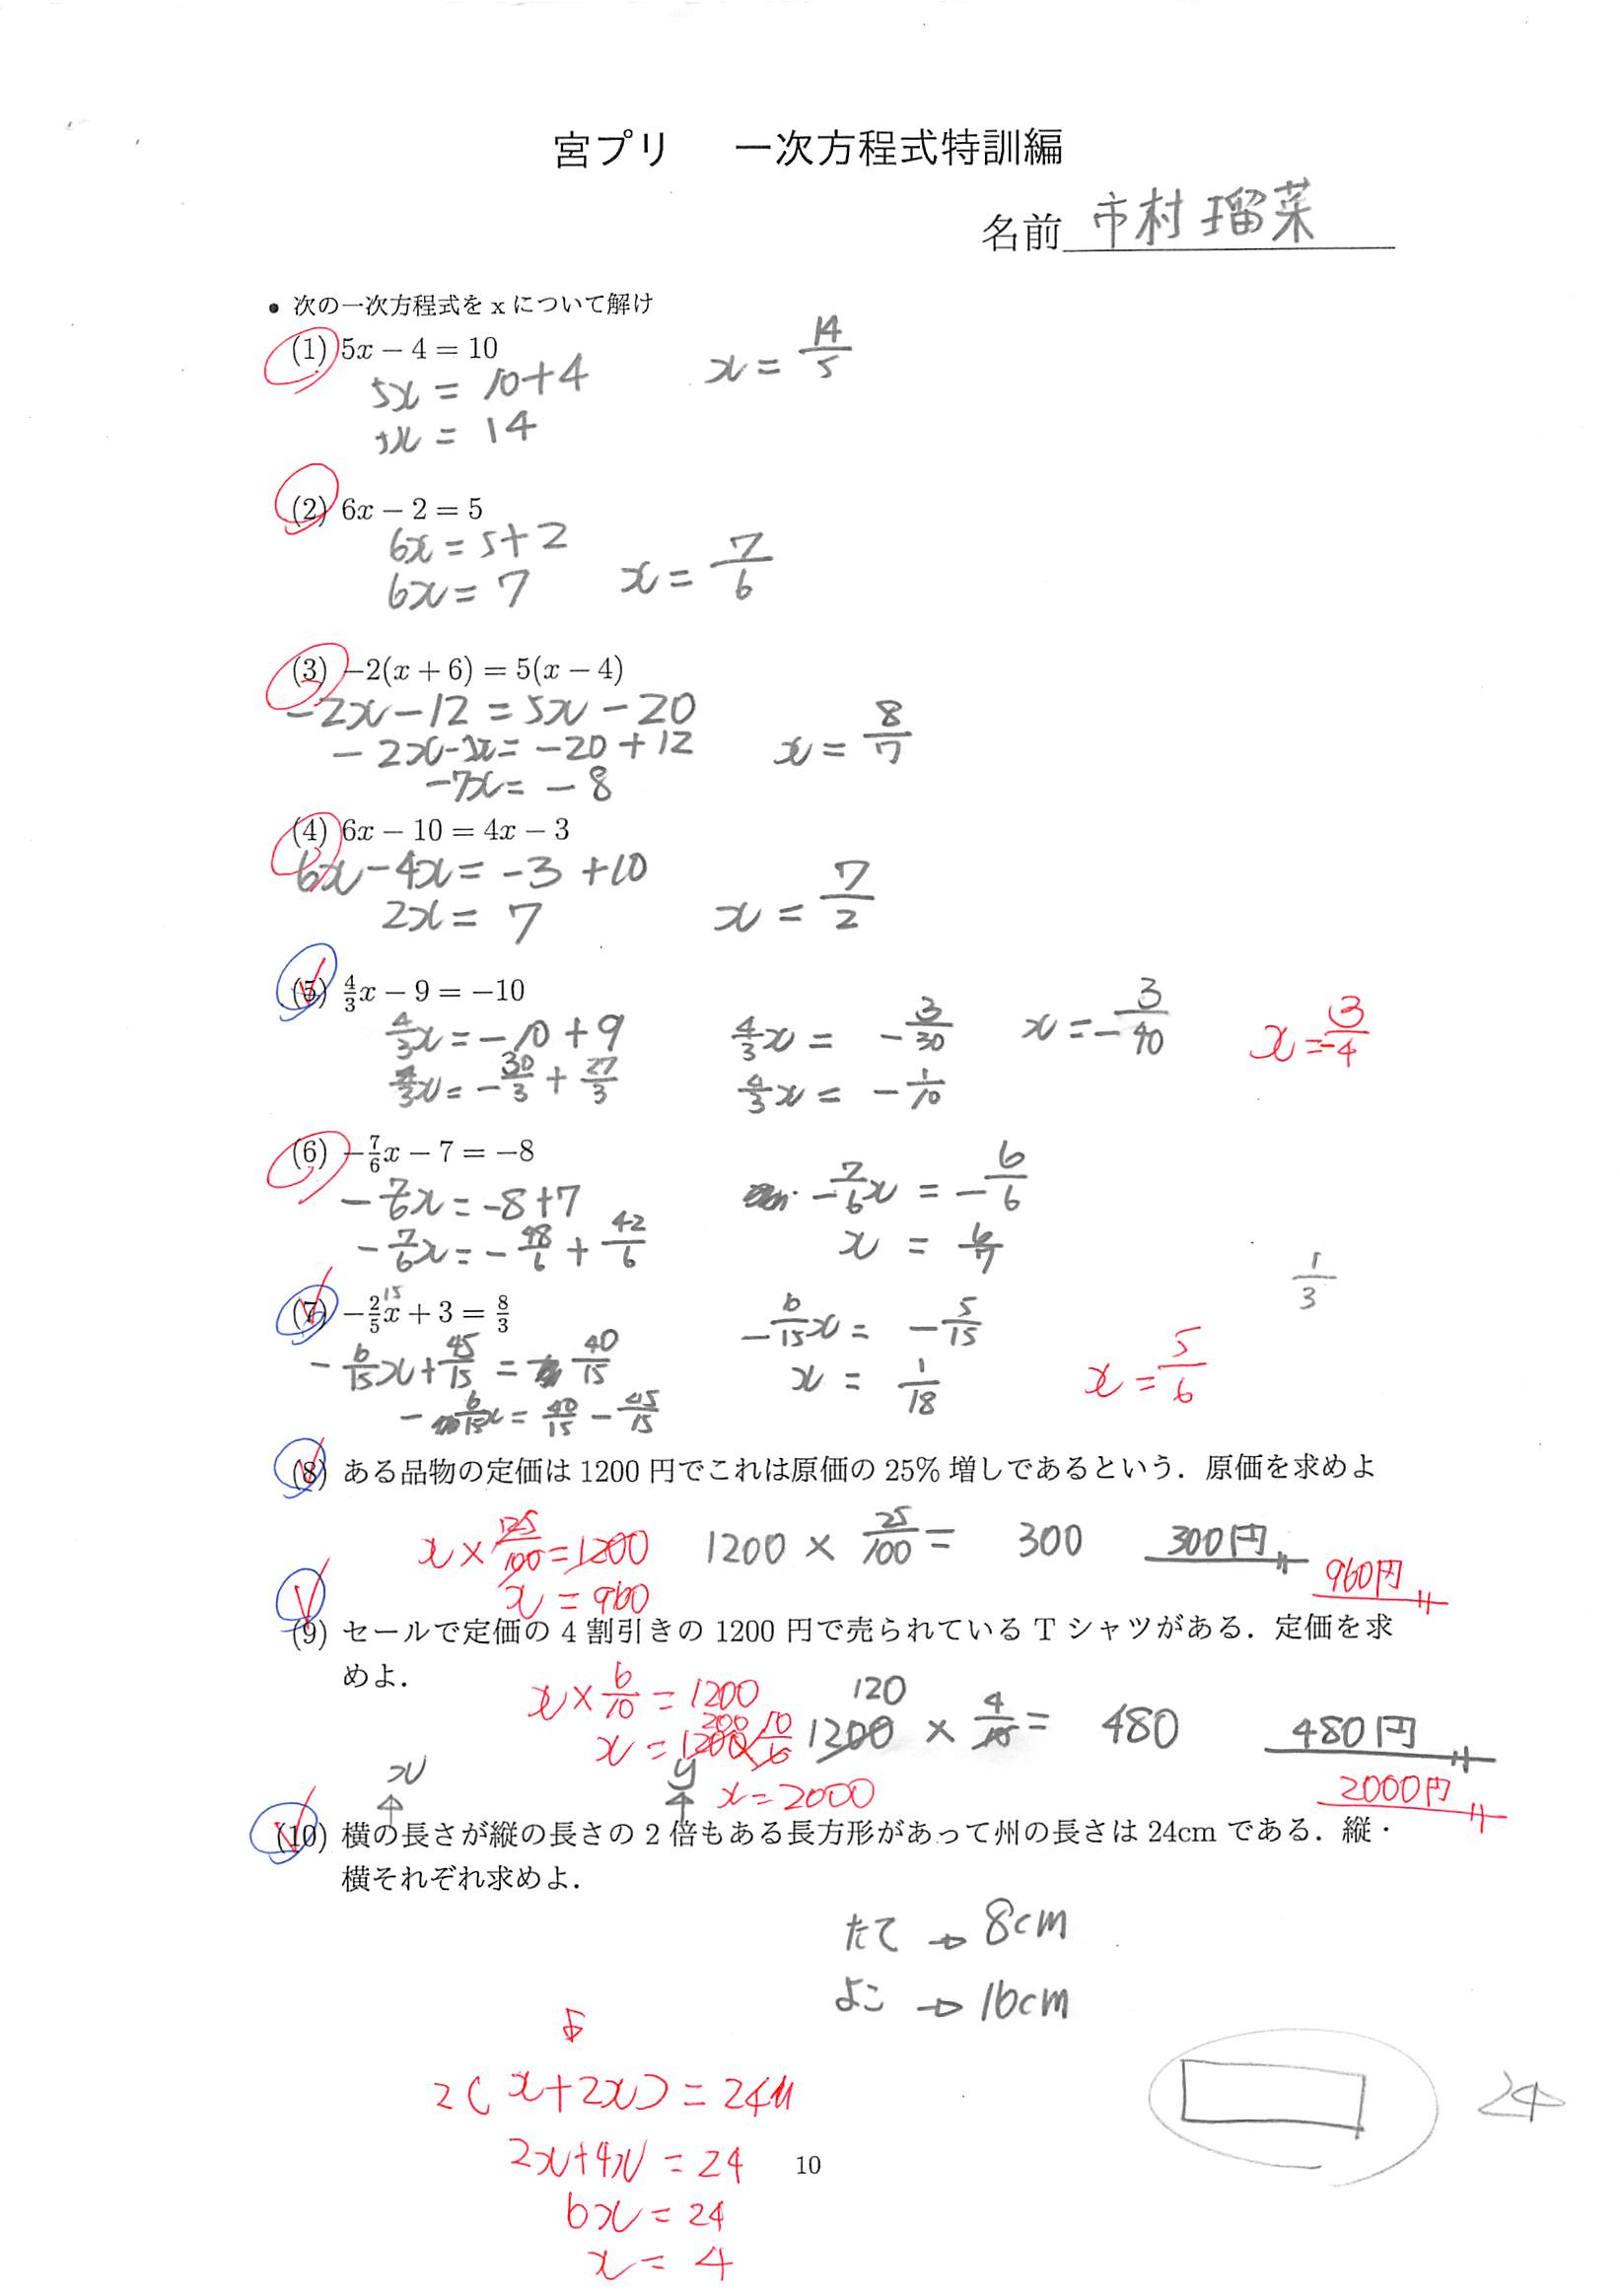 宮プリ 一次方程式特訓編
名前 市村 瑠菜
• 次の一次方程式をxについて解け
(1) 5x − 4 = 10
5x = 10+4
5x = 14
x = 14/5
(2) 6x − 2 = 5
6x = 5+2
6x = 7
x = 7/6
(3) −2(x + 6) = 5(x − 4)
-2x-12 = 5x-20
-2x-5x = -20+12
-7x = -8
x = 8/7
(4) 6x − 10 = 4x − 3
6x-4x = -3+10
2x = 7
x = 7/2
(5) 4/3x − 9 = −10
4/3x = -10+9
4/3x = -30/3 + 27/3
4/3x = -3/30
4/3x = -1/10
x = -3/40
x = 3/-4
(6) −7/6x − 7 = −8
-7/6x = -8+7
-7/6x = -48/6 + 42/6
-7/6x = -6/6
x = 6/7
1/3
(7) −2/5x + 3 = 8/3
15
-6/15x + 45/15 = 40/15
-6/15x = 40/15 - 45/15
-6/15x = -5/15
x = 1/18
x = 5/6
(8) ある品物の定価は1200円でこれは原価の25%増しであるという．原価を求めよ
x × 125/100 = 1200
x = 960
1200 × 25/100 = 300
300円
960円
(9) セールで定価の4割引きの1200円で売られているTシャツがある．定価を求
めよ．
x × 6/10 = 1200
200
x = 1200 × 10/6
x = 2000
120
1200 × 4/10 = 480
480円
2000円
x
y
(10) 横の長さが縦の長さの2倍もある長方形があって州の長さは24cmである．縦・
横それぞれ求めよ．
たて → 8cm
よこ → 16cm
2(x+2x) = 24
2x+4x = 24
6x = 24
x = 4
24
10